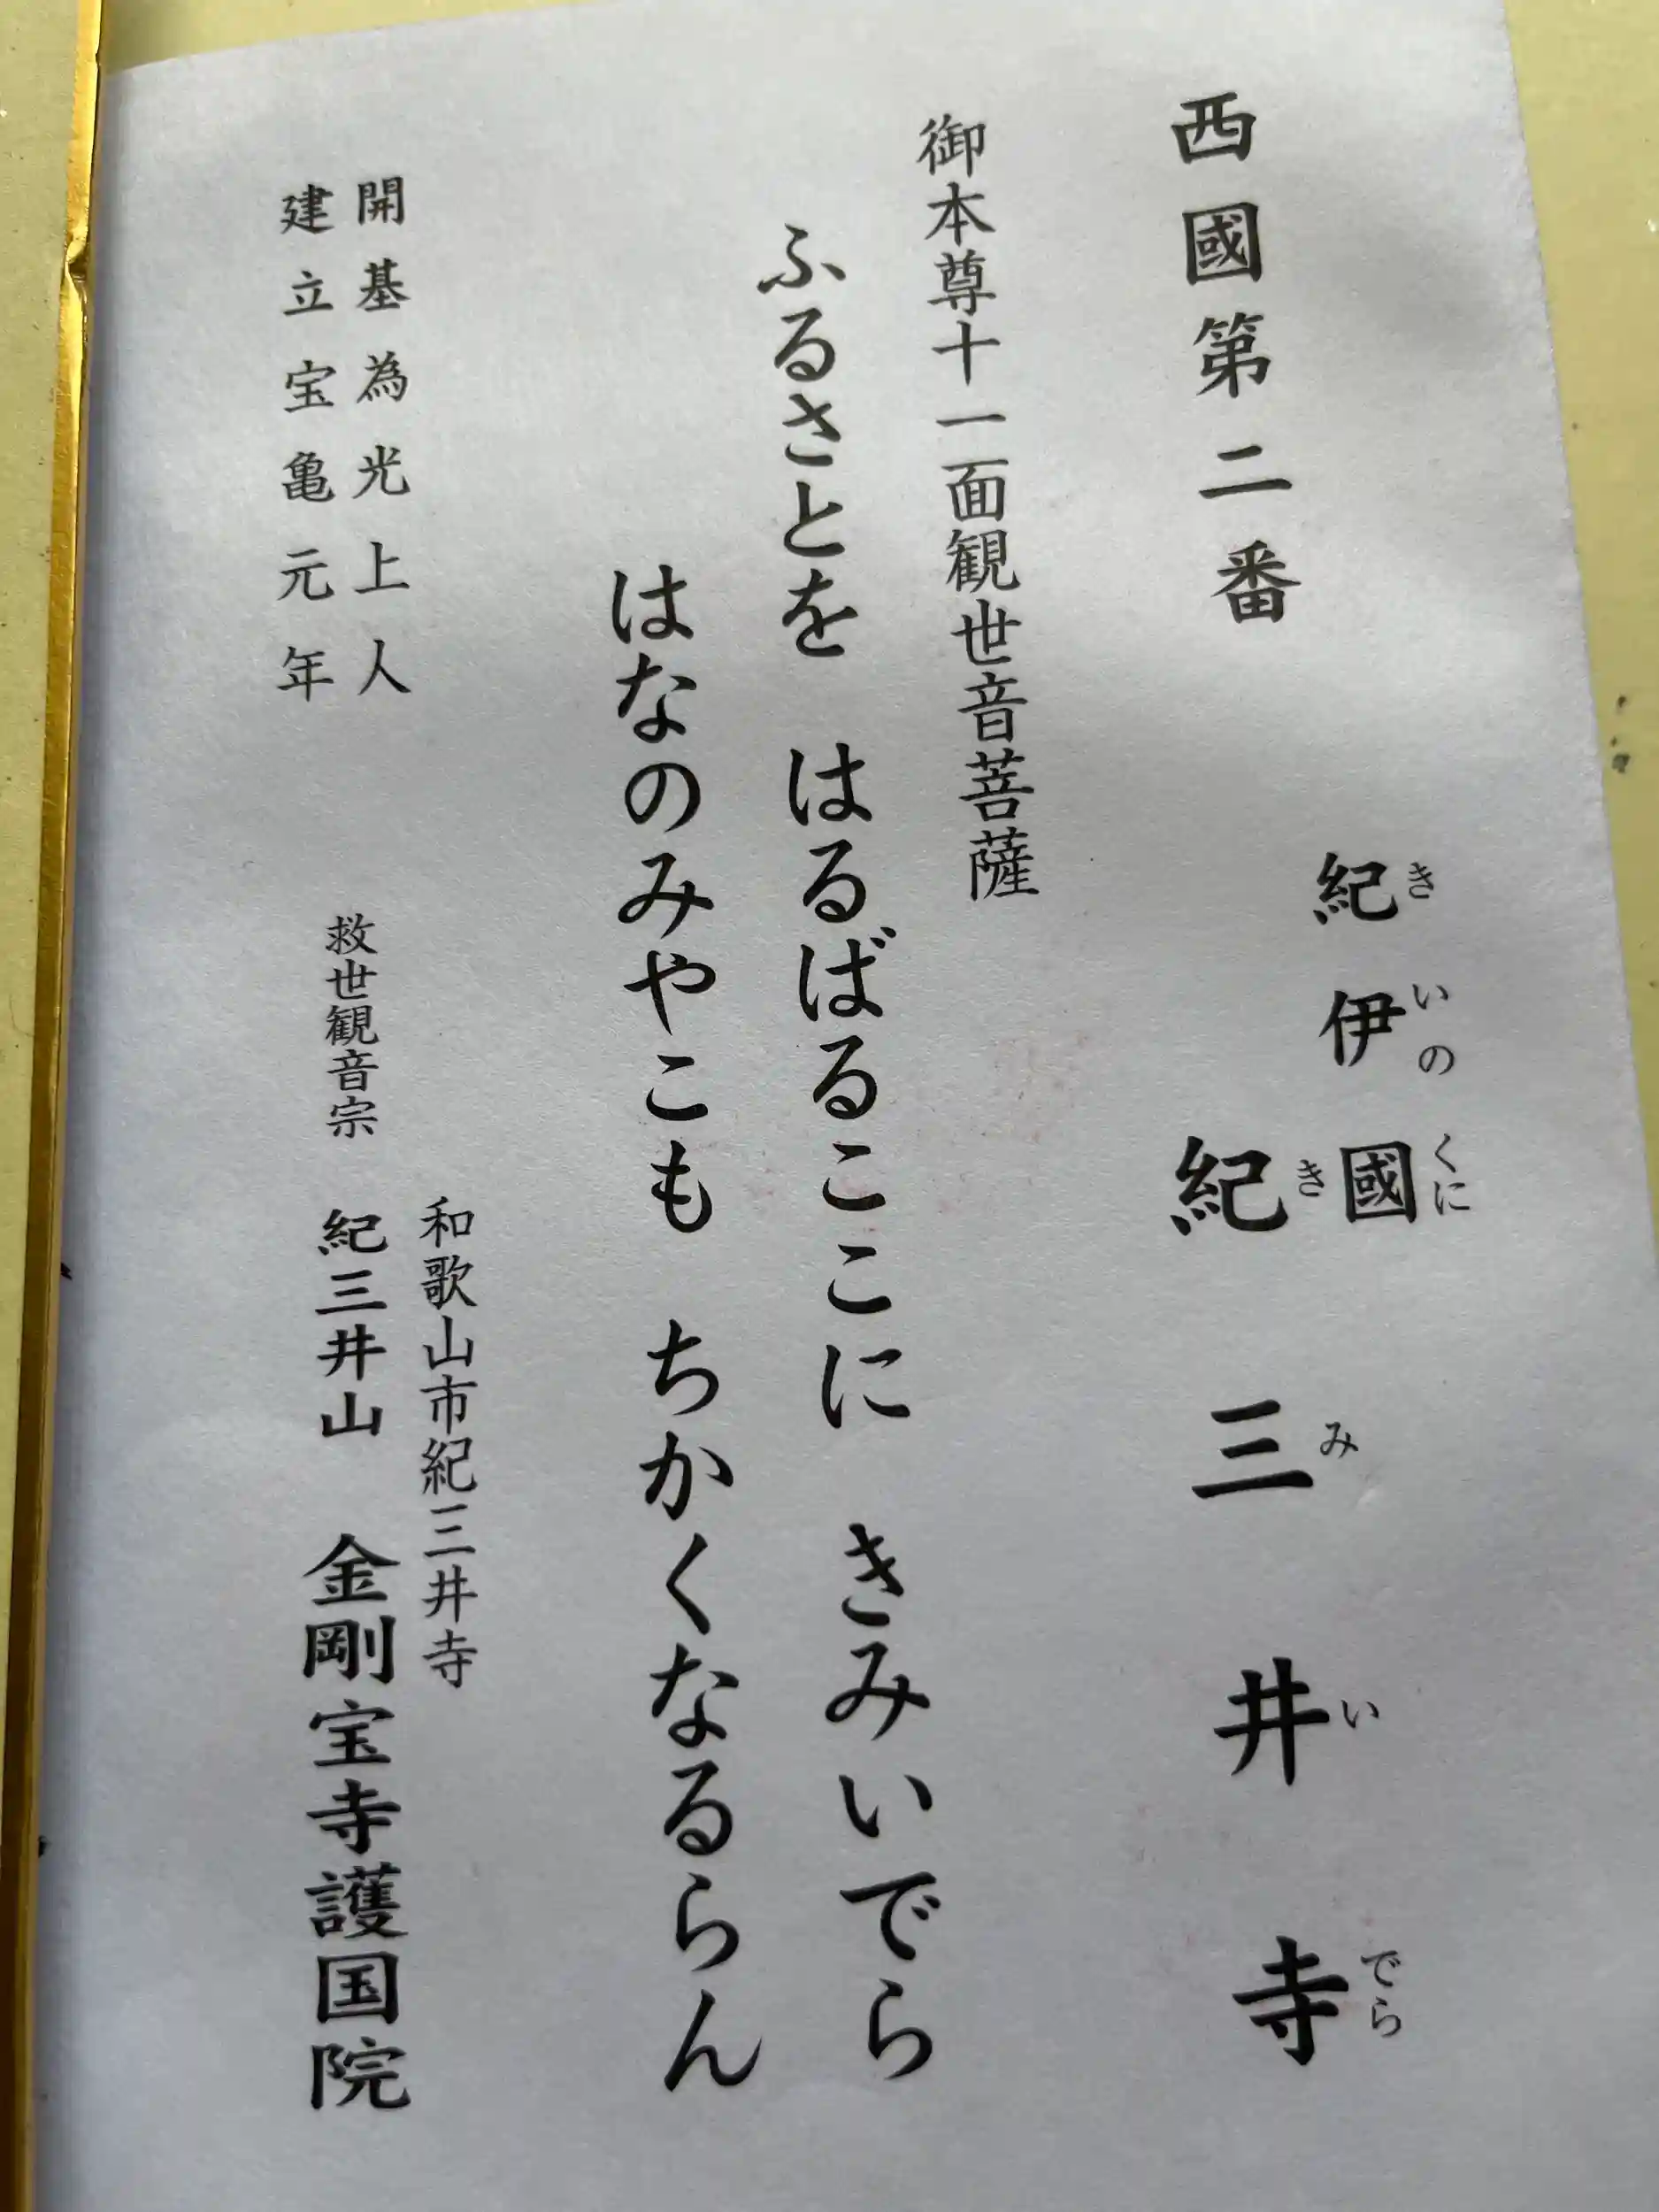 西國第二番
紀伊國
きいのくに
紀三井寺
きみいでら
御本尊十一面観世音菩薩
ふるさとを はるばるここに きみいでら
はなのみやこも ちかくなるらん
開基為光上人
建立宝亀元年
和歌山市紀三井寺
救世観音宗 紀三井山 金剛宝寺護国院